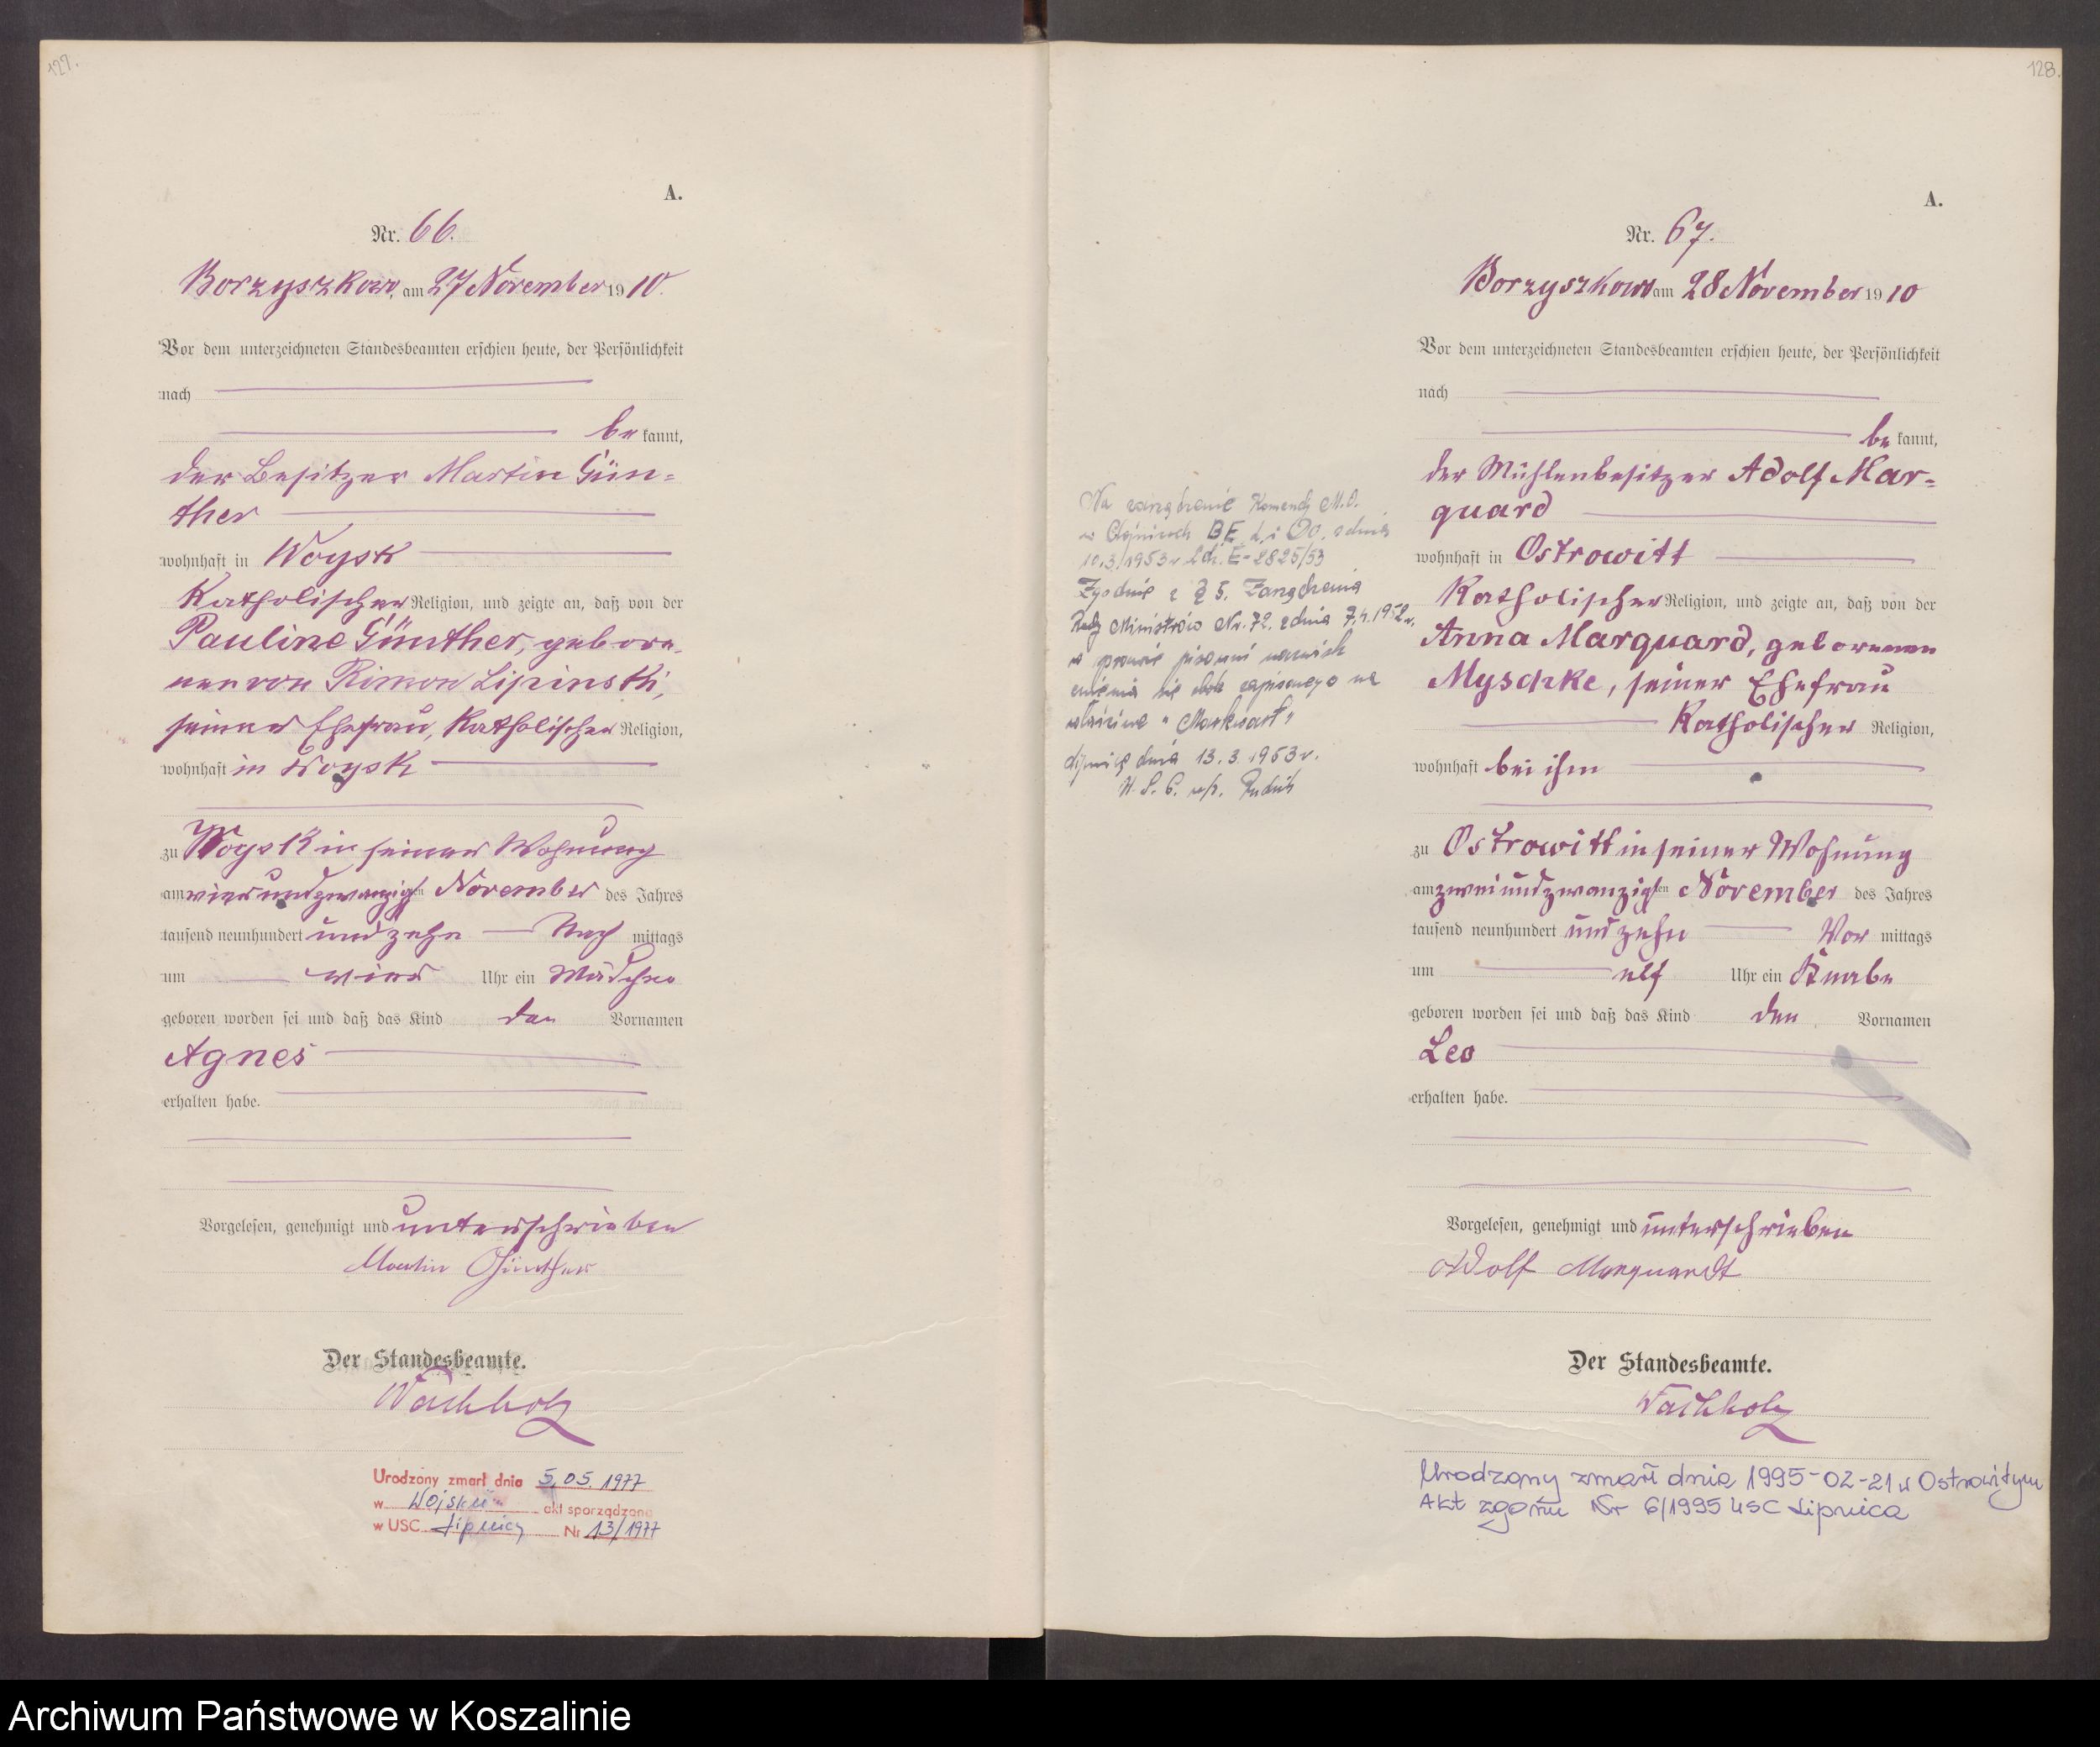 127.
A.
Nr. 66.
Borzyszkowo, am 27 November 1910.
Vor dem unterzeichneten Standesbeamten erschien heute, der Persönlichkeit
nach
be kannt,
der Besitzer Martin Gün=
ther
wohnhaft in Woysk
Katholischer Religion, und zeigte an, daß von der
Pauline Günther, gebore-
nen von Rimon Lipinski,
seiner Ehefrau, Katholischer Religion,
wohnhaft in Woysk
zu Woysk in seiner Wohnung
am vierundzwanzigsten November des Jahres
tausend neunhundert und zehn Nach mittags
um vier Uhr ein Mädchen
geboren worden sei und daß das Kind den Vornamen
Agnes
erhalten habe.
Vorgelesen, genehmigt und unterschrieben
Martin Günther
Der Standesbeamte.
Wachholz
Urodzony zmarł dnia 5.05.1977
w Wojsku akt sporządzono
w USC Lipnicy Nr 13/1977
128.
A.
Nr. 67.
Borzyszkowo am 28 November 1910
Vor dem unterzeichneten Standesbeamten erschien heute, der Persönlichkeit
nach
be kannt,
der Mühlenbesitzer Adolf Mar=
quard
wohnhaft in Ostrowitt
Katholischer Religion, und zeigte an, daß von der
Anna Marquard, geborenen
Myschke, seiner Ehefrau
Katholischer Religion,
wohnhaft bei ihm
zu Ostrowitt in seiner Wohnung
am zweiundzwanzigsten November des Jahres
tausend neunhundert und zehn Vor mittags
um elf Uhr ein Knabe
geboren worden sei und daß das Kind den Vornamen
Leo
erhalten habe.
Vorgelesen, genehmigt und unterschrieben
Adolf Marquardt
Der Standesbeamte.
Wachholz
Urodzony zmarł dnia 1995-02-21 w Ostrowitym
Akt zgonu Nr 6/1995 USC Lipnica
Na zarządzenie Komendy M.O.
w Chojnicach BE. L. i Do. z dnia
10.3.1953 r Ldz. E-2825/53
Zgodnie z § 5. Zarządzenia
Rady Ministrów Nr. 72. z dnia
w prawie pisowni nazwisk
się obok zapisanego na
właściwe "Markwart"
dnia 13.3.1953 r.
Archiwum Państwowe w Koszalinie